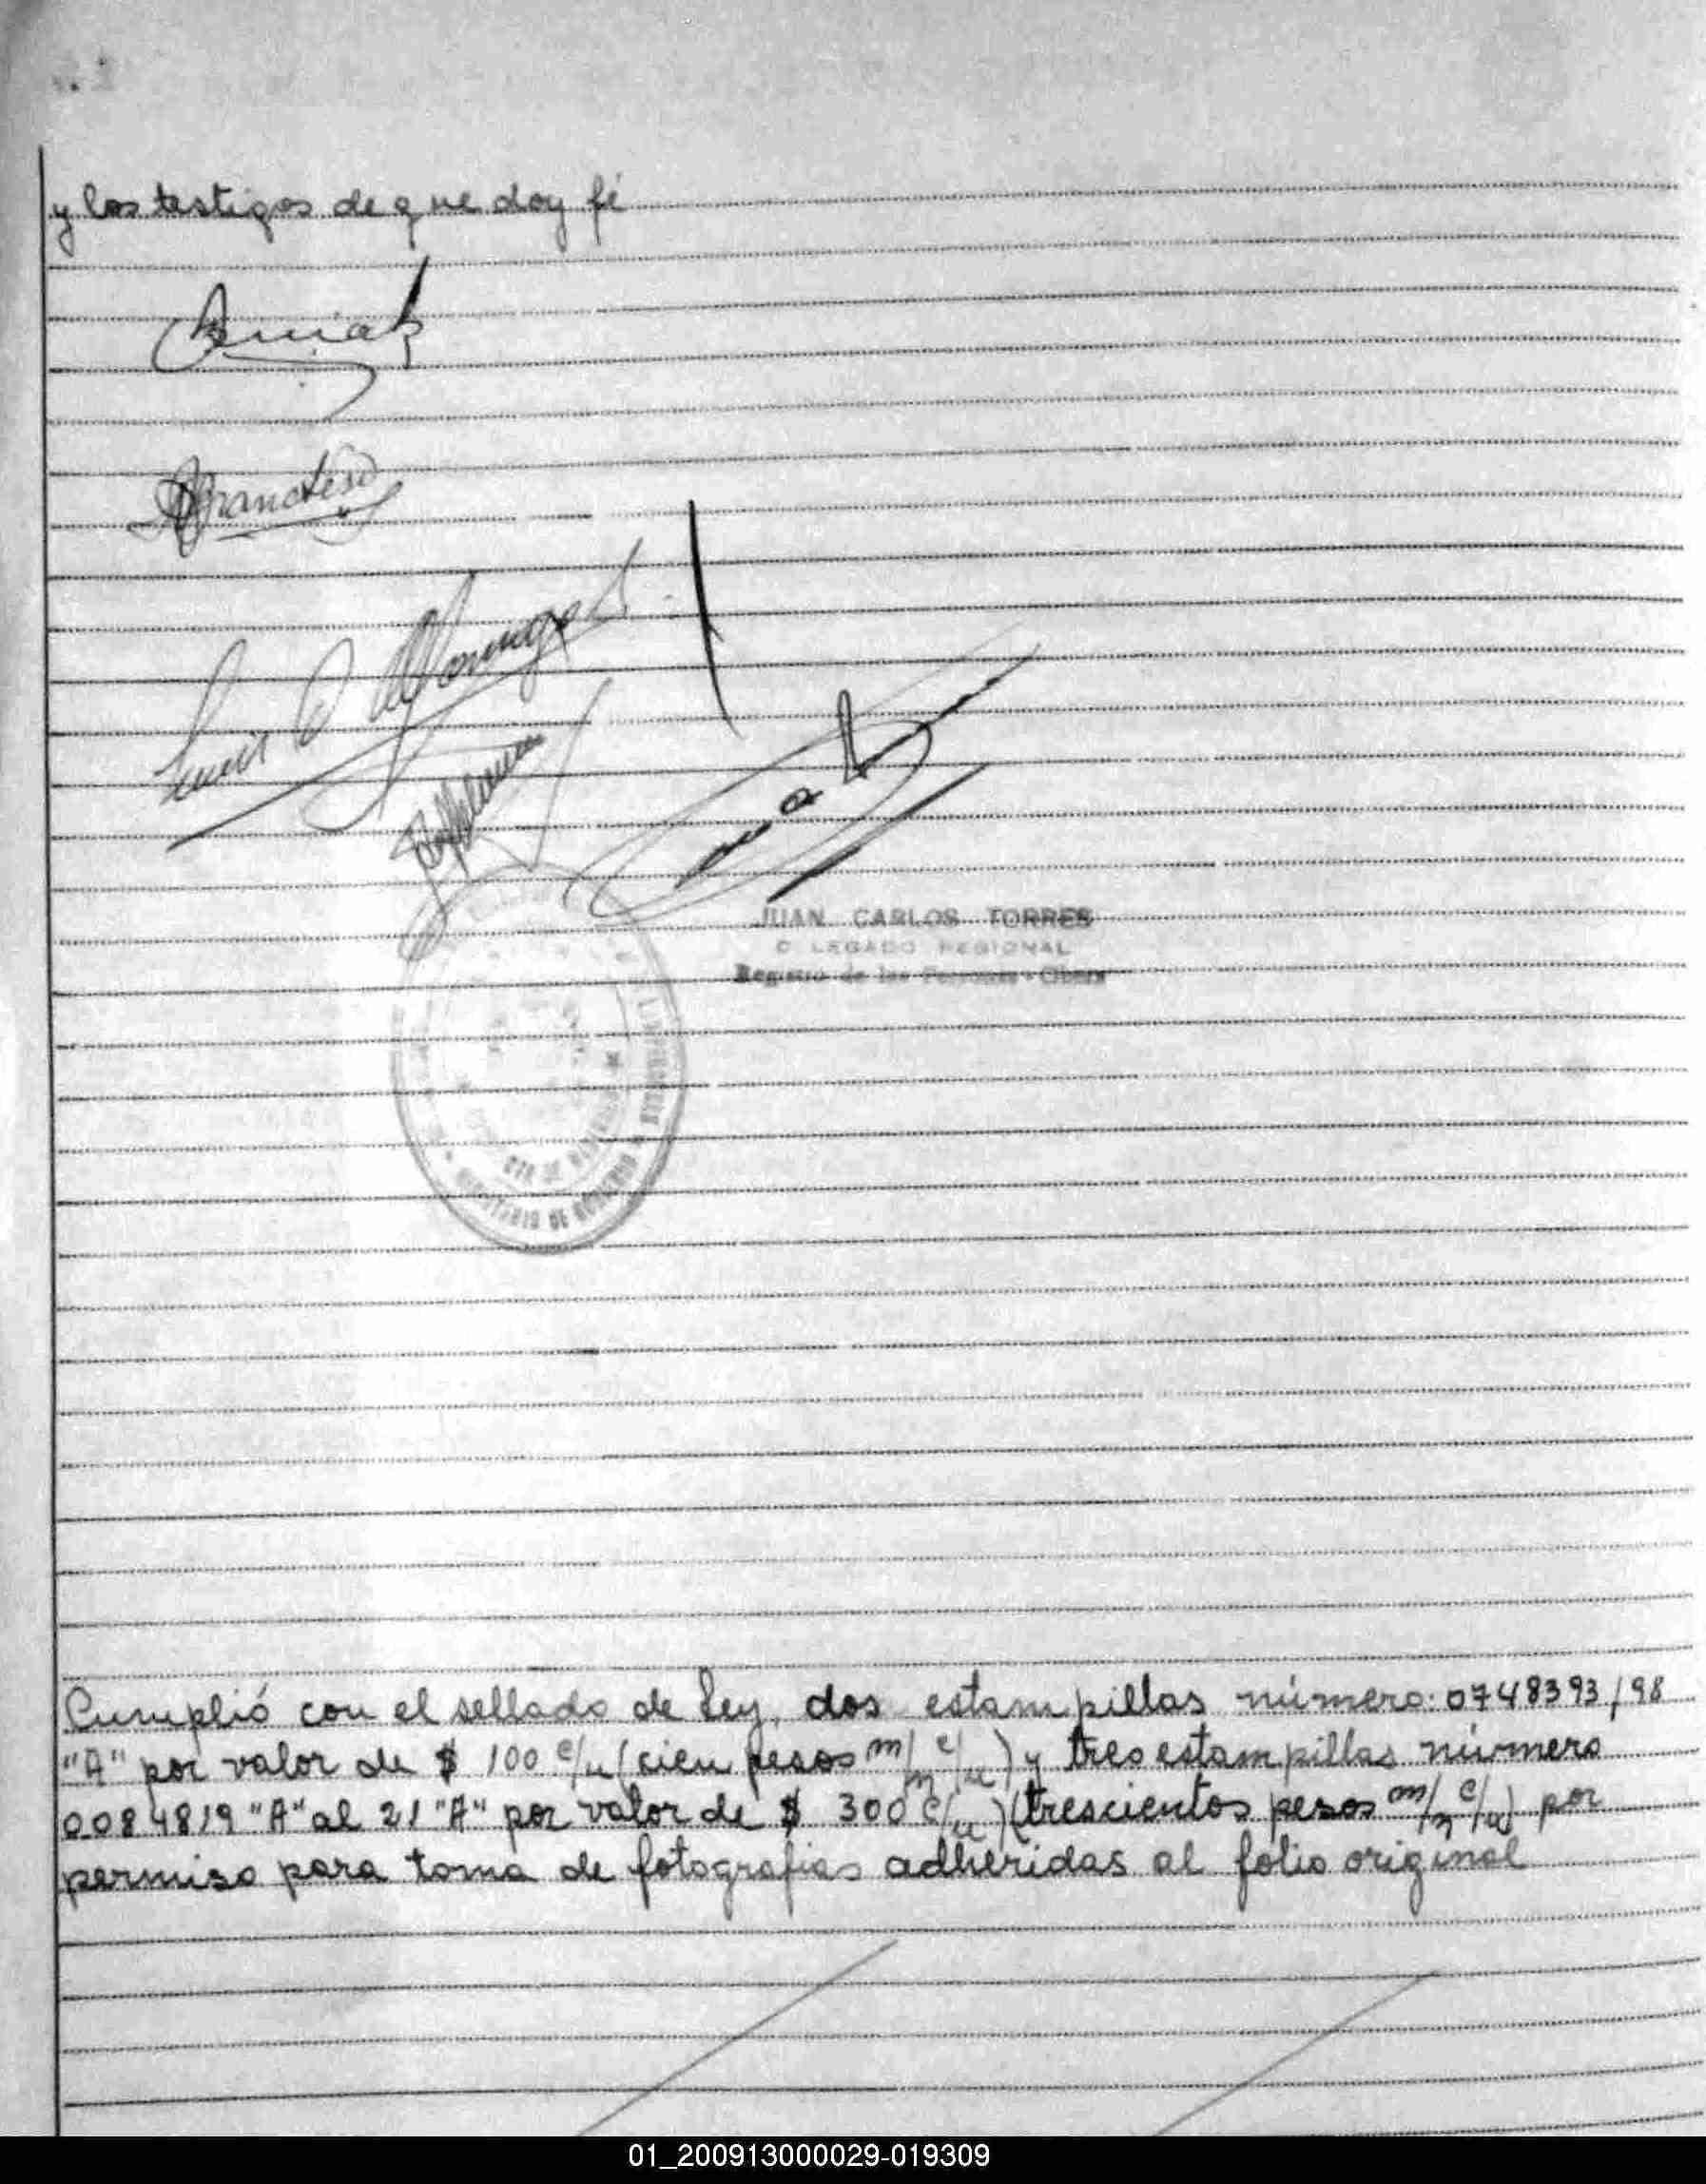 y los testigos de que doy fé
Francisco
JUAN CARLOS TORRES
DELEGADO REGIONAL
Registro de las Personas - Oberá
MINISTERIO DE GOBIERNO
Cumplió con el sellado de Ley, dos estampillas número: 0748393/98
"A" por valor de $ 100 c/u (cien pesos m/n c/u) y tres estampillas número
0084819 "A" al 21 "A" por valor de $ 300 c/u) (trescientos pesos m/n c/u) por
permiso para toma de fotografias adheridas al folio original
01_200913000029-019309